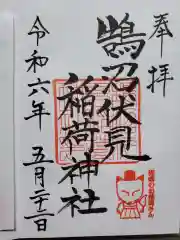 奉拝
鵠沼伏見
稲荷神社
令和六年 五月二十二日